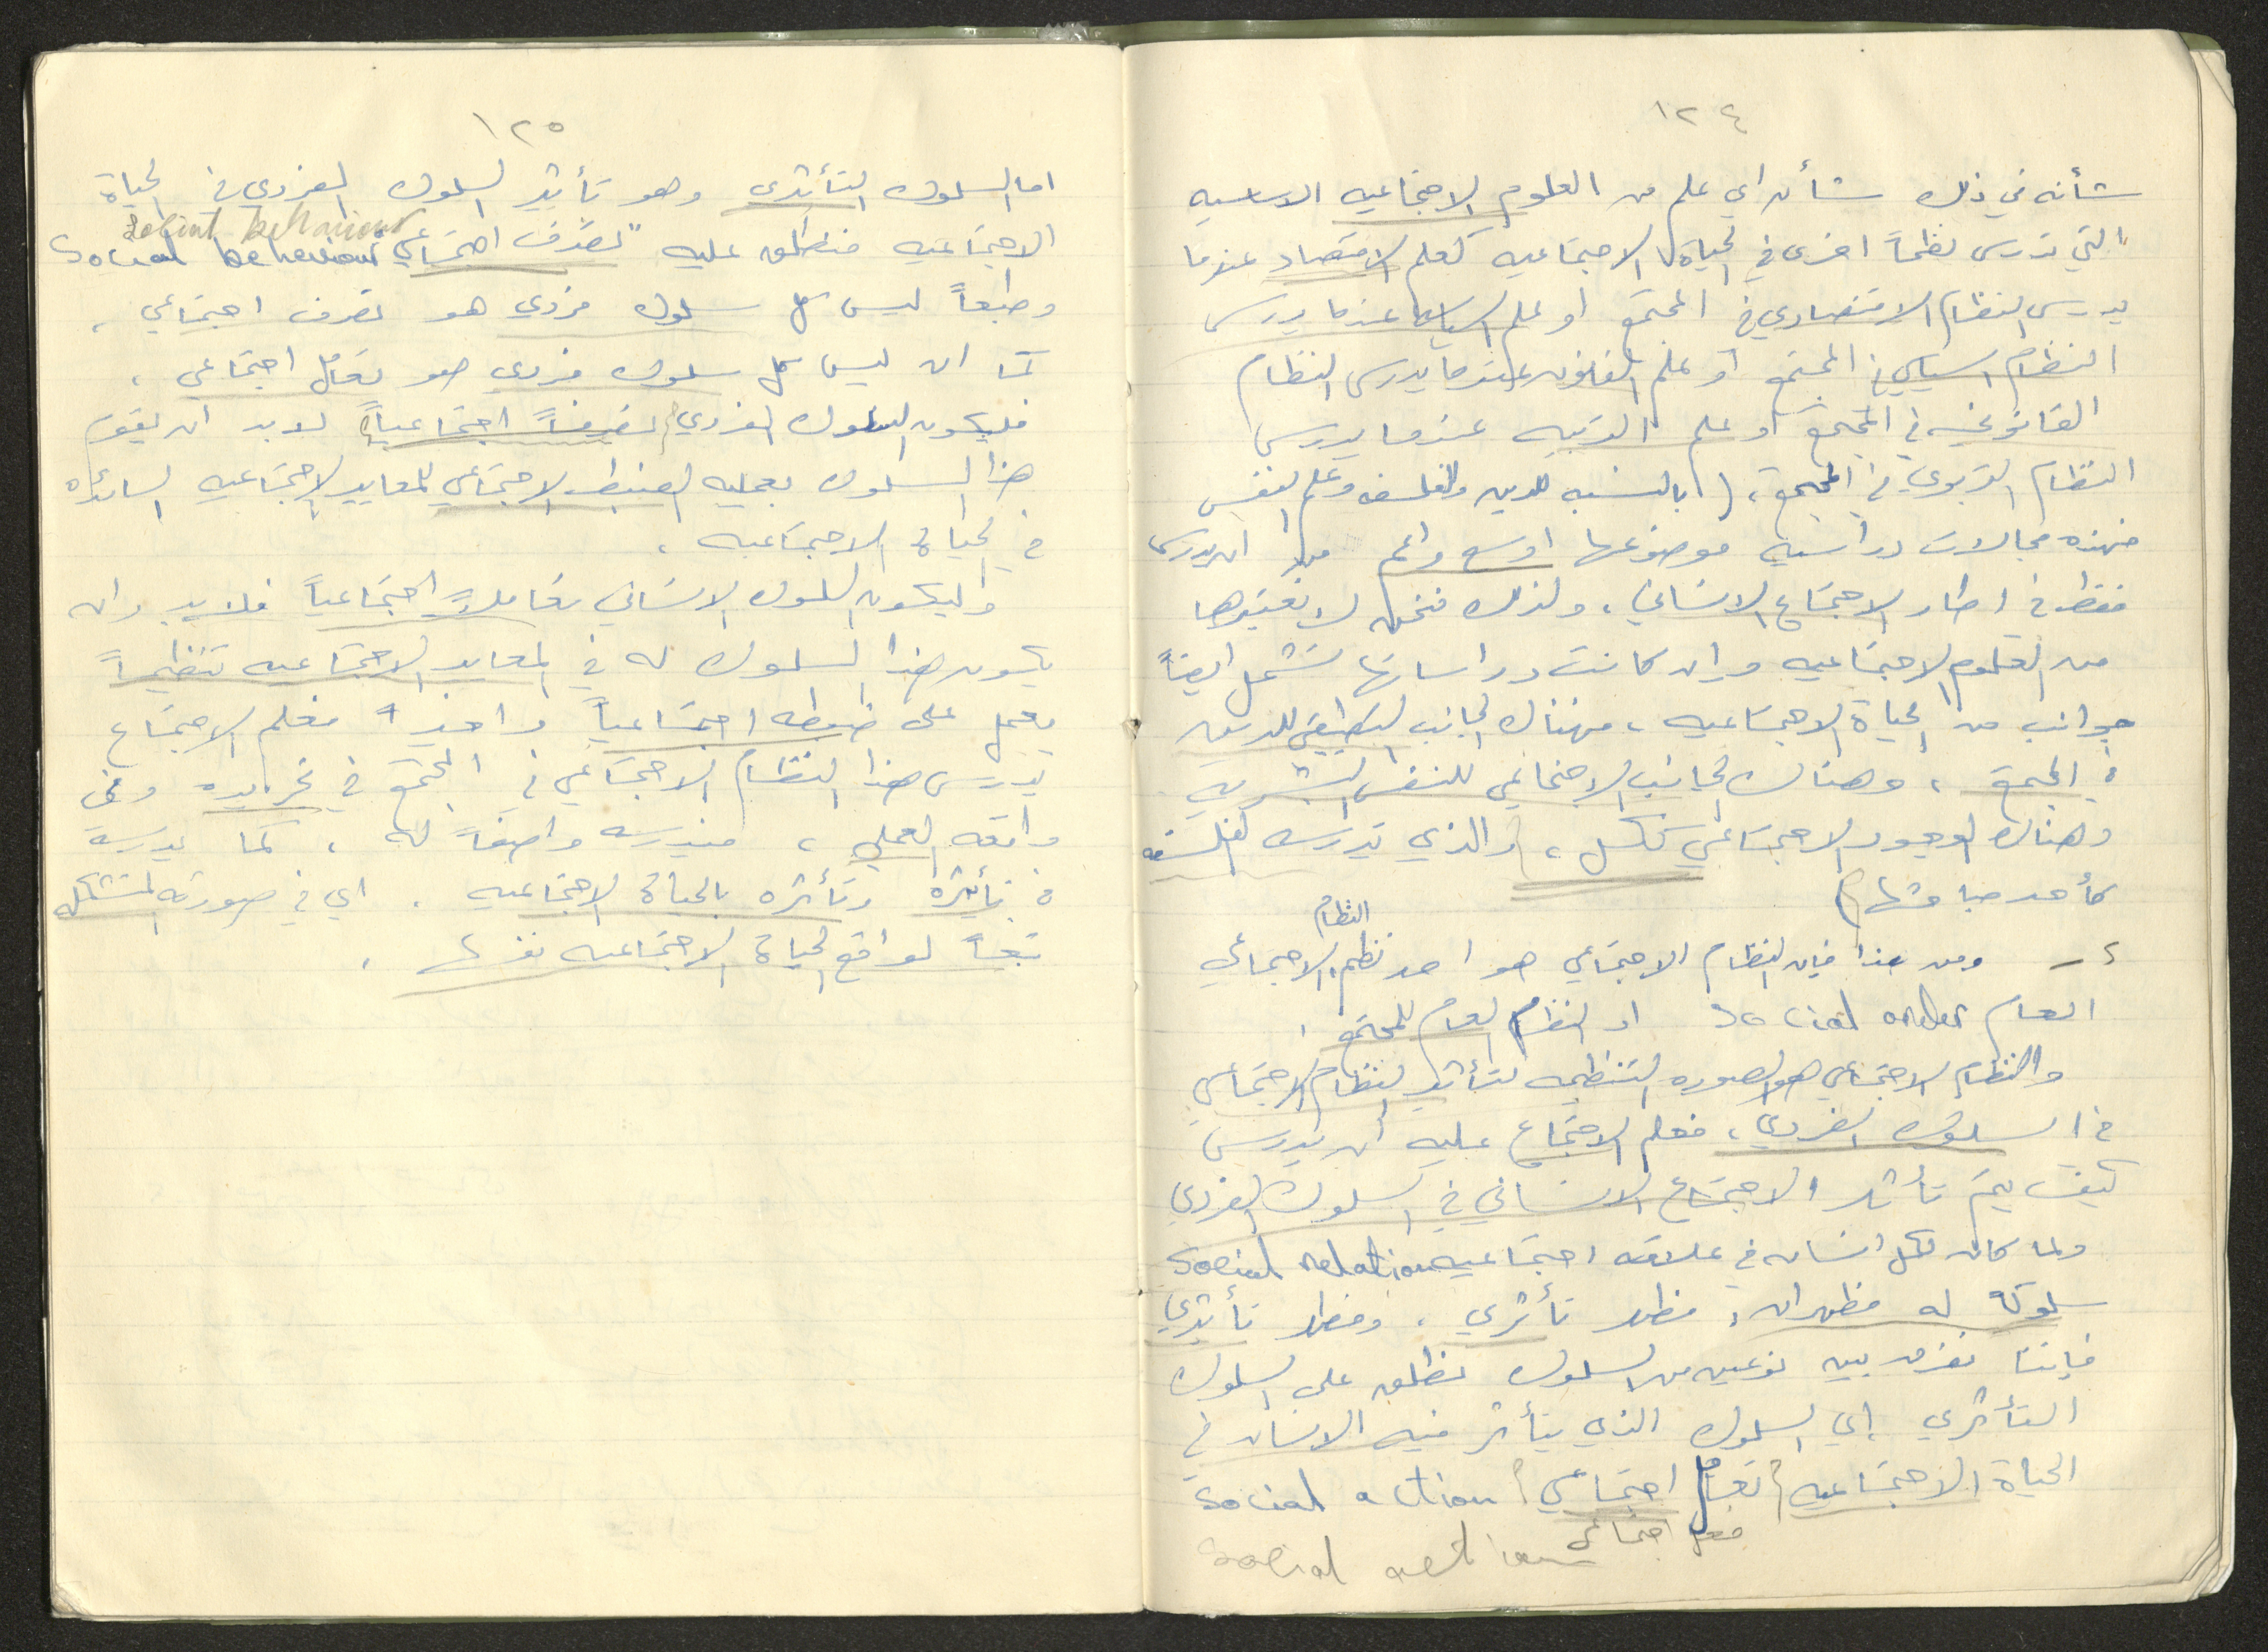 ١٢٤
شأنه في ذلك شأن اي علم من العلوم الاجتماعيه الاساسيه
التي تدرس نظماً اخرى في الحياة الاجتماعيه كعلم الاقتصاد عندما
يدرس النظام الاقتصادي في المجتمع او علم السياسه عندما يدرس
النظام السياسي في المجتمع او علم القانون عندما يدرس النظام
القانوني في المجتمع او علم التربيه عندما يدرس
النظام التربوي في المجتمع، (بالنسبه للدين والفلسفه وعلم النفس
فهذه مجالات دراسيه موضوعها اوسع واعم من ان يدرس
فقط في اطار الاجتماع الانساني، ولذلك فنحن لا نعتبرها
من العلوم الاجتماعيه وان كانت دراساتها تشمل ايضاً
جوانب من الحياة الاجتماعيه، فهناك الجانب التطبيقي للدين
في المجتمع، وهناك الجانب الاجتماعي للنفس البشريه
وهناك الوجود الاجتماعي ككل، والذي تدرسه الفلسفه
كأحد مباحثها)
٤ـ ومن هذا فإن النظام الاجتماعي هو احد نظم النظام الاجتماعي
العام social order او النظام العام للمجتمع.
والنظام الاجتماعي هو الصوره التنظيميه لتأثير النظام الاجتماعي
في السلوك الفردي، فعلم الاجتماع عليه ان يدرس
كيف يتم تأثير الاجتماع الانساني في السلوك الفردي
ولما كان لكل انسان في علاقه اجتماعيه social relation
سلوك له مظهران: مظهر تأثري، ومظهر تأثيري
فإننا نفرق بين نوعين من السلوك نطلق على السلوك
التأثري اي السلوك الذي يتأثر فيه الانسان في
الحياة الاجتماعيه (تفاعل اجتماعي) social action
فعل اجتماعي
social action
١٢٥
اما السلوك التأثيري وهو تأثير السلوك الفردي في الحياة
الاجتماعيه فنطلق عليه "تصرف اجتماعي social behaviour
social behaviour
وطبعاً ليس كل سلوك فردي هو تصرف اجتماعي،
كما ان ليس كل سلوك فردي هو تفاعل اجتماعي،
فليكون السلوك الفردي (تصرفاً اجتماعياً) لابد ان يقوم
هذا السلوك بعمليه الضبط الاجتماعي للمعايير الاجتماعيه السائده
في الحياة الاجتماعيه،
وليكون السلوك الانساني تفاعلاً اجتماعياً فلابد وان
يكون هذا السلوك له في المعايير الاجتماعيه تنظيماً
يعمل على ضبطه اجتماعياً فعلم الاجتماع
يدرس هذا النظام الاجتماعي في المجتمع في تجريده وفي
واقعه العملي، فيدرسه واصفاً له، كما يدرسه
في تأثيره وتأثره بالحياة الاجتماعيه. اي في صورته المتشكله
تبعاً لواقع الحياة الاجتماعيه نفسها.